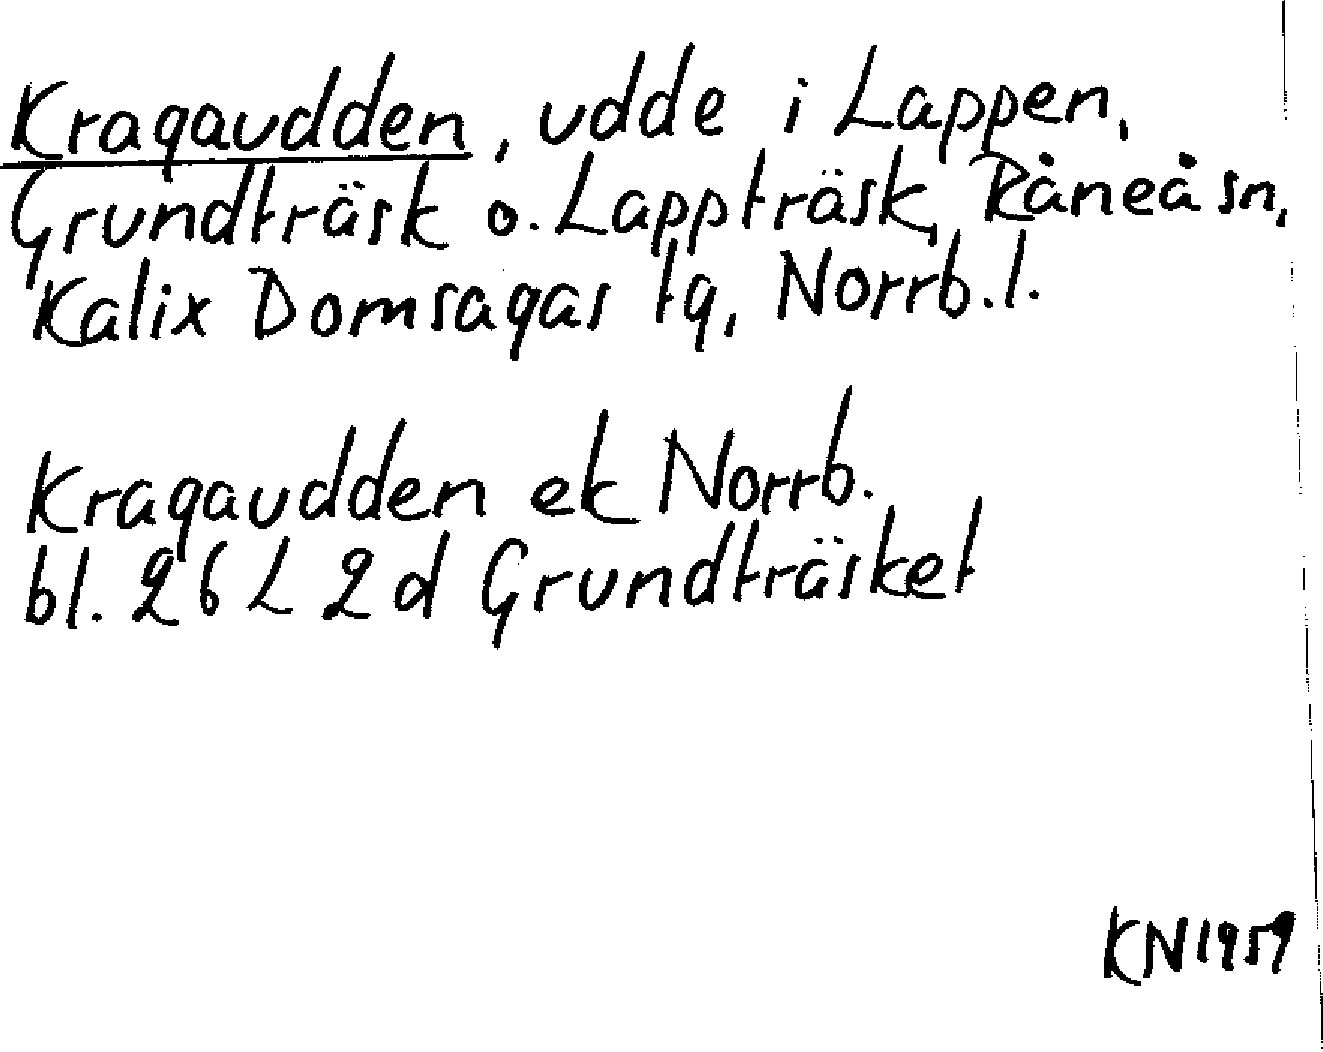 Kragaudden, udde i Lappen,
Grundträsk o. Lappträsk, Råneå sn,
Kalix Domsagas tg, Norrb. l.
Kragaudden ek Norrb.
bl. 26 L 2 d Grundträsket
KN 1959